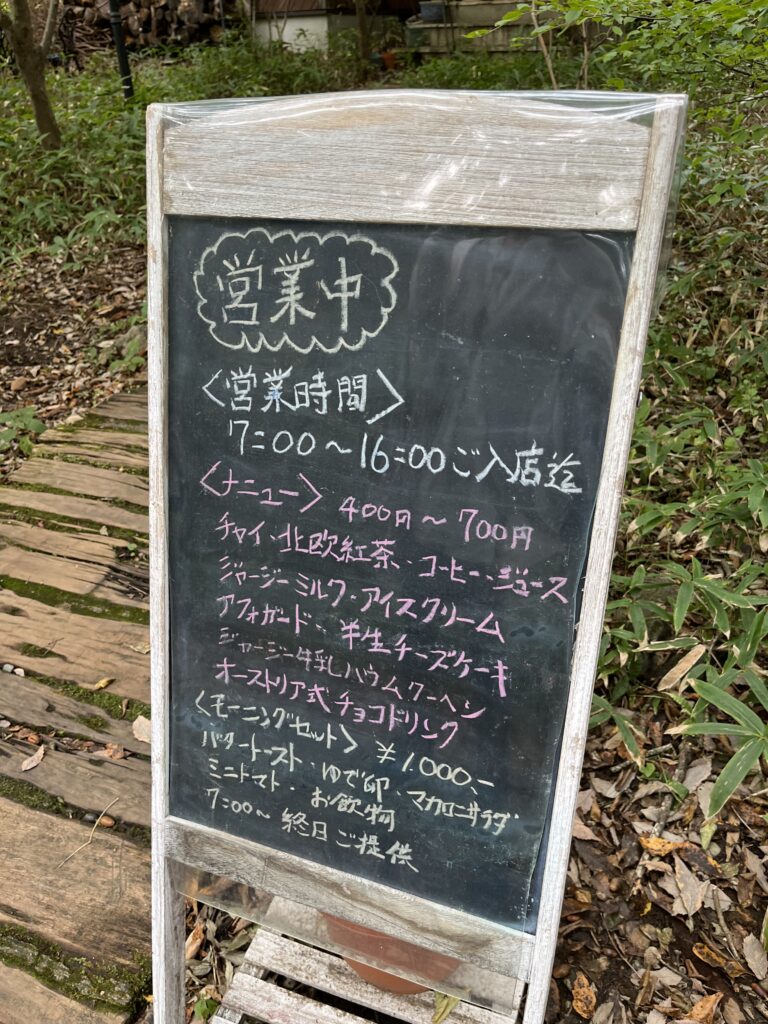 営業中
〈営業時間〉
7:00〜16:00ご入店迄
〈メニュー〉 400円〜700円
チャイ・北欧紅茶・コーヒー・ジュース
ジャージーミルク・アイスクリーム
アフォガード・半生チーズケーキ
ジャージー牛乳バウムクーヘン
オーストリア式チョコドリンク
〈モーニングセット〉 ¥1000,-
バタートースト・ゆで卵・マカロニサラダ
ミニトマト・お飲物
7:00〜 終日ご提供